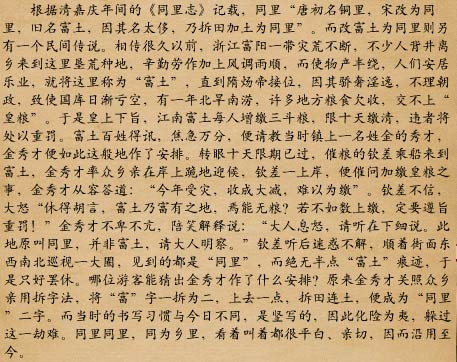 根据清嘉庆年间的《同里志》记载，同里“唐初名铜里，宋改为同
里，旧名富土，因其名太侈，乃拆田加土为同里”。而改富土为同里则另
有一个民间传说。相传很久以前，浙江富阳一带灾荒不断，不少人背井离
乡来到这里垦荒种地，辛勤劳作加上风调雨顺，而使物产丰绕，人们安居
乐业，就将这里称为“富土”，直到隋炀帝接位，因其骄奢淫逸，不理朝
政，致使国库日渐亏空，有一年北旱南涝，许多地方粮食欠收，交不上“
皇粮”。于是皇上下旨，江南富土每人增缴三斗粮，限十天缴清，违者将
处以重罚。富土百姓得讯，焦急万分，便请教当时镇上一名姓金的秀才，
金秀才便如此这般地作了安排。转眼十天限期已过，催粮的钦差乘船来到
富土，金秀才率众乡亲在岸上跪地迎候，钦差一上岸，便催问加缴皇粮之
事，金秀才从容答道：“今年受灾，收成大减，难以为缴”。钦差不信，
大怒“休得胡言，富土乃富有之地，焉能无粮？若不如数上缴，定要遵旨
重罚！”金秀才不卑不亢，陪笑解释说：“大人息怒，请听在下细说。此
地原叫同里，并非富土，请大人明察。”钦差听后迷惑不解，顺着街面东
西南北巡视一大圈，见到的都是“同里”，而绝无半点“富土”痕迹，于
是只好罢休。哪位游客能猜出金秀才作了什么安排？原来金秀才关照众乡
亲用拆字法，将“富”字一拆为二，上去一点，拆田连土，便成为“同里
”二字。而当时的书写习惯与今日不同，是竖写的，因此化险为夷，躲过
这一劫难。同里同里，同为乡里，看着叫着都很平白、亲切，因而沿用至
今。